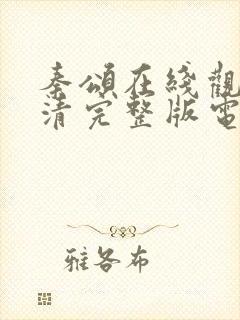 秦頌在綫觀
清完整版電
雅各布